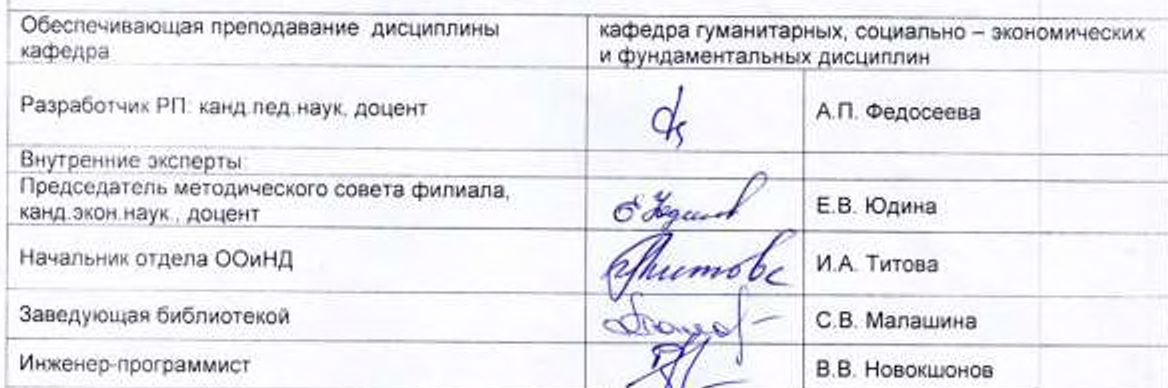 Обеспечивающая преподавание дисциплины
кафедра
кафедра гуманитарных, социально – экономических
и фундаментальных дисциплин
Разработчик РП: канд.пед.наук, доцент
А.П. Федосеева
Внутренние эксперты:
Председатель методического совета филиала,
канд.экон.наук., доцент
Е.В. Юдина
Начальник отдела ООиНД
И.А. Титова
Заведующая библиотекой
С.В. Малашина
Инженер-программист
В.В. Новокшонов